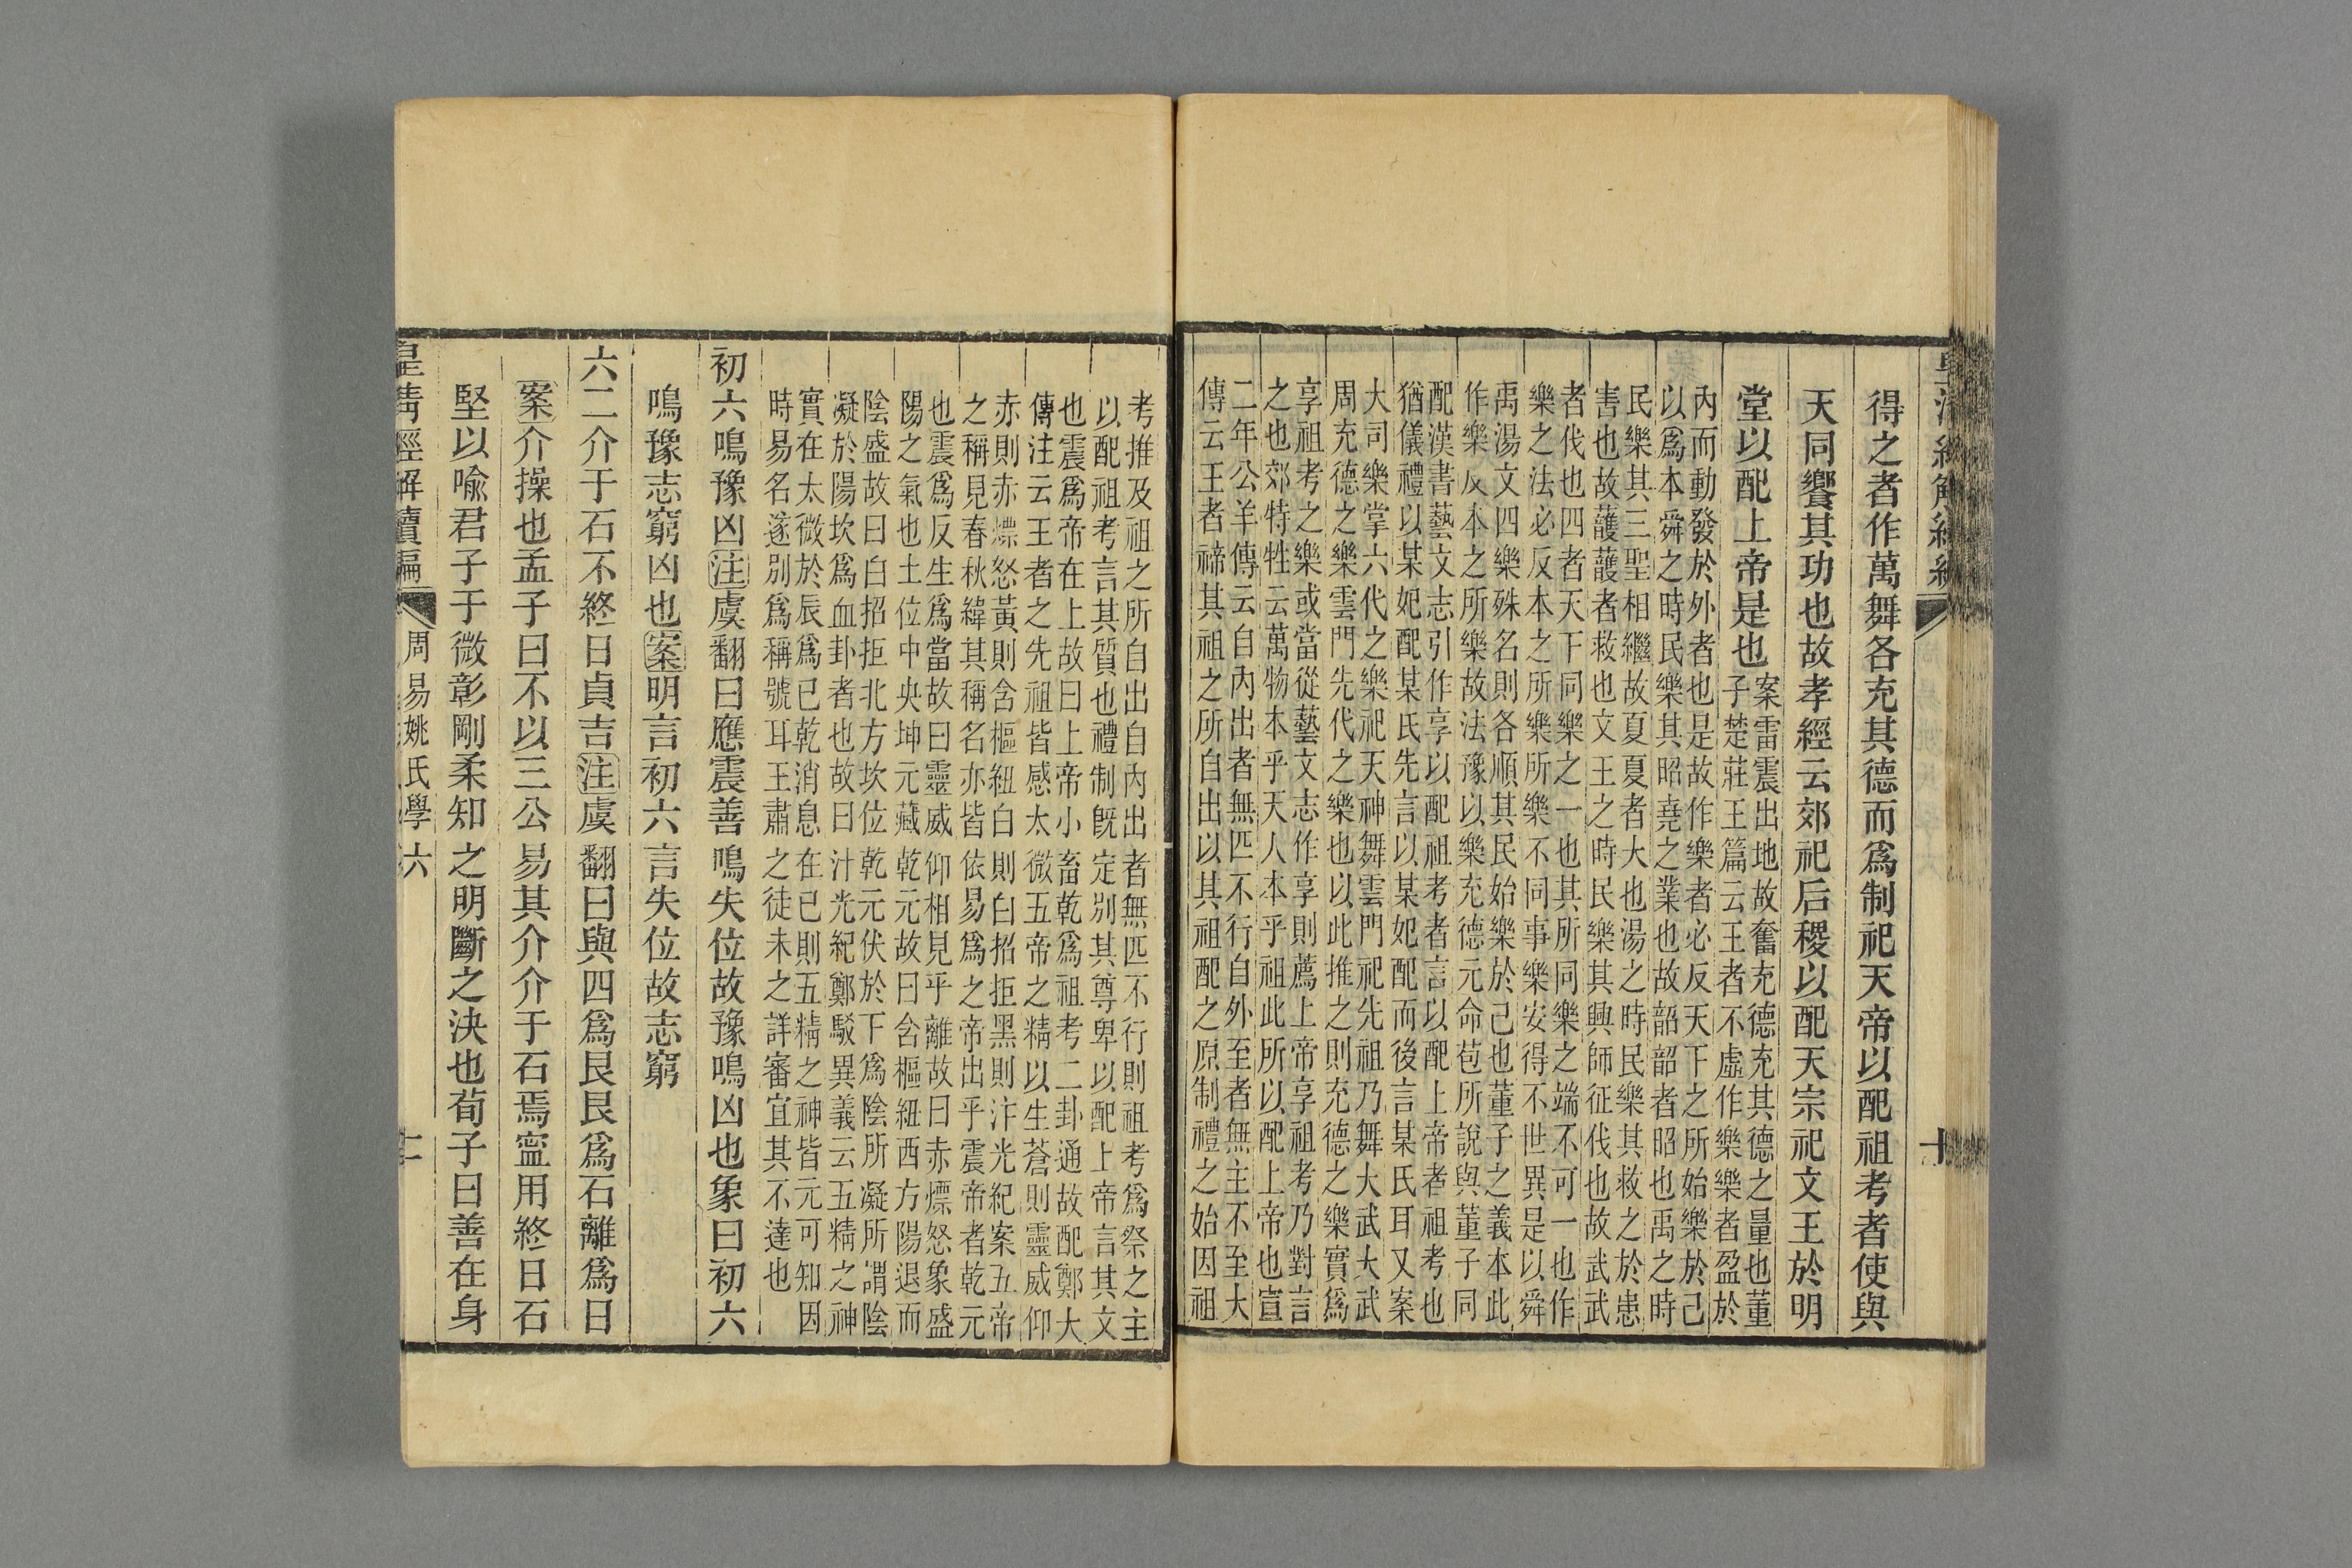 皇清經解續編
十
得之者作萬舞各充其德而爲制祀天帝以配祖考者使與
天同饗其功也故孝經云郊祀后稷以配天宗祀文王於明
堂以配上帝是也案雷震出地故奮充德充其德之量也董
子楚莊王篇云王者不虛作樂樂者盈於
內而動發於外者也是故作樂者必反天下之所始樂於己
以爲本舜之時民樂其昭堯之業也故韶韶者昭也禹之時
民樂其三聖相繼故夏夏者大也湯之時民樂其救之於患
害也故頀頀者救也文王之時民樂其興師征伐也故武武
者伐也四者天下同樂之一也其所同樂之端不可一也作
樂之法必反本之所樂所樂不同事樂安得不世異是以舜
禹湯文四樂殊名則各順其民始樂於己也董子之義本此
作樂反本之所樂故法豫以樂充德元命苞所說與董子同
配漢書藝文志引作享以配祖考者言以配上帝者祖考也
猶儀禮以某妃配某氏先言以某妃配而後言某氏耳又案
大司樂掌六代之樂祀天神舞雲門祀先祖乃舞大武大武
周充德之樂雲門先代之樂也以此推之則充德之樂實爲
享祖考之樂或當從藝文志作享則薦上帝享祖考乃對言
之也郊特牲云萬物本乎天人本乎祖此所以配上帝也宣
二年公羊傳云自內出者無匹不行自外至者無主不至大
傳云王者禘其祖之所自出以其祖配之原制禮之始因祖
考推及祖之所自出自內出者無匹不行則祖考爲祭之主
以配祖考言其質也禮制旣定別其尊卑以配上帝言其文
也震爲帝在上故曰上帝小畜乾爲祖考二卦通故配鄭大
傳注云王者之先祖皆感太微五帝之精以生蒼則靈威仰
赤則赤熛怒黃則含樞紐白則白招拒黑則汁光紀案五帝
之稱見春秋緯其稱名亦皆依易爲之帝出乎震帝者乾元
也震爲反生爲當故曰靈威仰相見乎離故曰赤熛怒象盛
陽之氣也土位中央坤元藏乾元故曰含樞紐西方陽退而
陰盛故曰白招拒北方坎位乾元伏於下爲陰所凝所謂陰
凝於陽坎爲血卦者也故曰汁光紀鄭駁異義云五精之神
實在太微於辰爲巳乾消息在巳則五精之神皆元可知因
時易名遂別爲稱號耳王肅之徒未之詳審宜其不達也
初六鳴豫凶注虞翻曰應震善鳴失位故豫鳴凶也象曰初六
鳴豫志窮凶也案明言初六言失位故志窮
六二介于石不終日貞吉注虞翻曰與四爲艮艮爲石離爲日
案介操也孟子曰不以三公易其介介于石焉寍用終日石
堅以喩君子于微彰剛柔知之明斷之決也荀子曰善在身
皇清經解續編
周易姚氏學六
十一